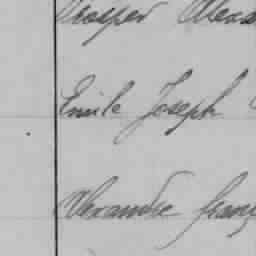 Prosper Alexa
Emile Joseph
Alexandre Franç